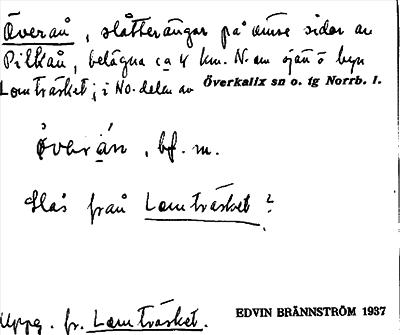 Överån, slåtterängar på ömse sidor av
Pilkån, belägna ca 4 km. N. om
Lomträsket, i NO. delen av Överkalix sn o. tg Norrb. l.
överán, bf. m.
Slås från Lomträsket?
Uppg. fr. Lomträsket.
EDVIN BRÄNNSTRÖM 1937